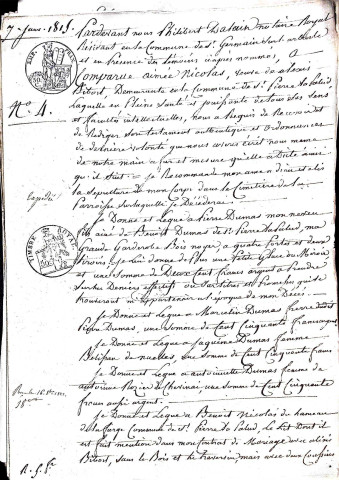 7 Janv. 1815.
Pardevant nous Philibert Notaire Royal
Résidant en la Commune de St. Germain sur
et en présence des témoins ci après nommés, A
Comparue aimée Nicolas, veuve de
Demeurante en la Commune de St. Pierre la palud
Laquelle en Pleine Santé et jouissante de tous ses Sens
et facultés intellectuelles, nous a requis de Recevoir et
de Rédiger Son testament authentique et ordonnances
de dernière volonté que nous avons écrit nous même
de notre main a fur et mesure qu'elle a Dicté ainsi
qu'il Suit = je Recommande mon ame a dieu et
la Sepulture de mon Corps dans le Cimetière de la
Parroisse Sur laquelle je Décéderai.
Je Donne et Legue a Pierre Dumas mon neveu
fils ainé de Benoît Dumas de St. Pierre la palud, ma
Grande Garderobe Bois noyer, a quatre Portes et deux
tiroirs. je lui donne de Plus une
et une Somme de Deux Cent francs argent a Prendre
Sur les Deniers effectifs ou Sur titres et Promesses qui se
trouveront m'appartenir a l'époque de mon Décès =
Je Donne et Legue a Marcelin Dumas frère dudit
Pierre Dumas, une Somme de Cent Cinquante francs argent
Je Donne et Legue a Jaqueme Dumas femme
de nuelles, une Somme de Cent Cinquante francs
Je Donne et Legue a antoinette Dumas femme de
antoine de thevinai une Somme de Cent Cinquante
francs aussi argent.
Je Donne et Legue a Benoît Nicolas du hameau
de la Gorge Commune de St. Pierre la Palud, le Lit Dont il
est fait mention dans mon Contrat de Mariage avec
Sans le Bois et le traversin, mais avec deux Coussins
N.° 4.
Expédié
TIMBRE ROYAL